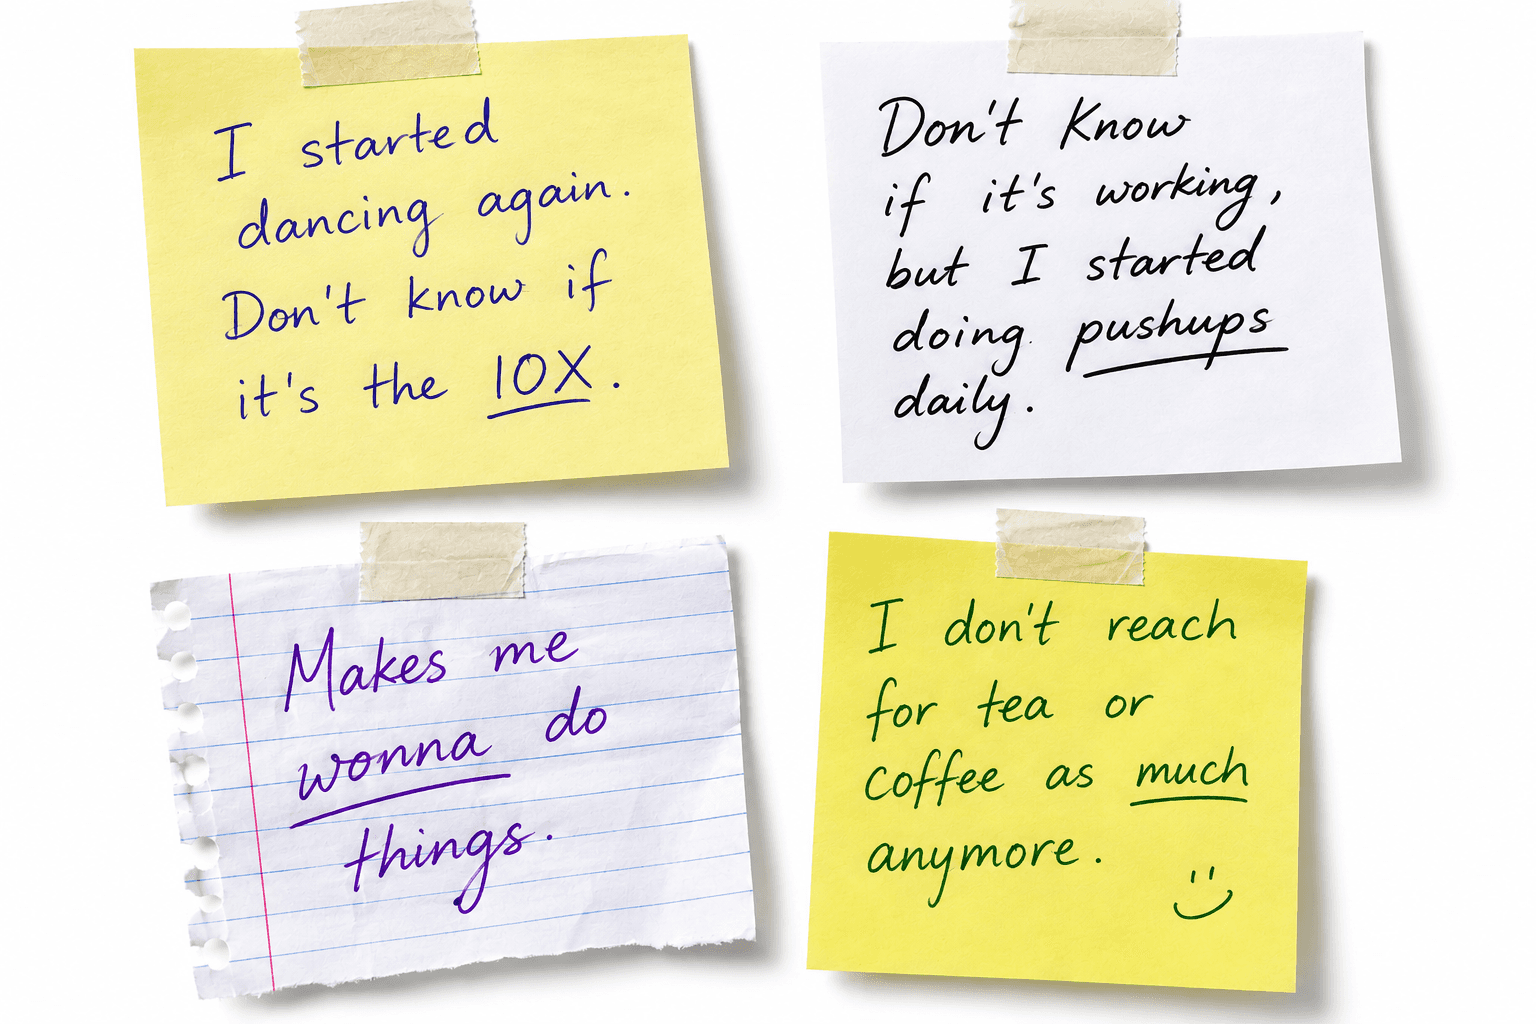 I started
dancing again.
Don't know if
it's the 10X.
Don't Know
if it's working,
but I started
doing pushups
daily.
Makes me
wonna do
things.
I don't reach
for tea or
coffee as much
anymore.